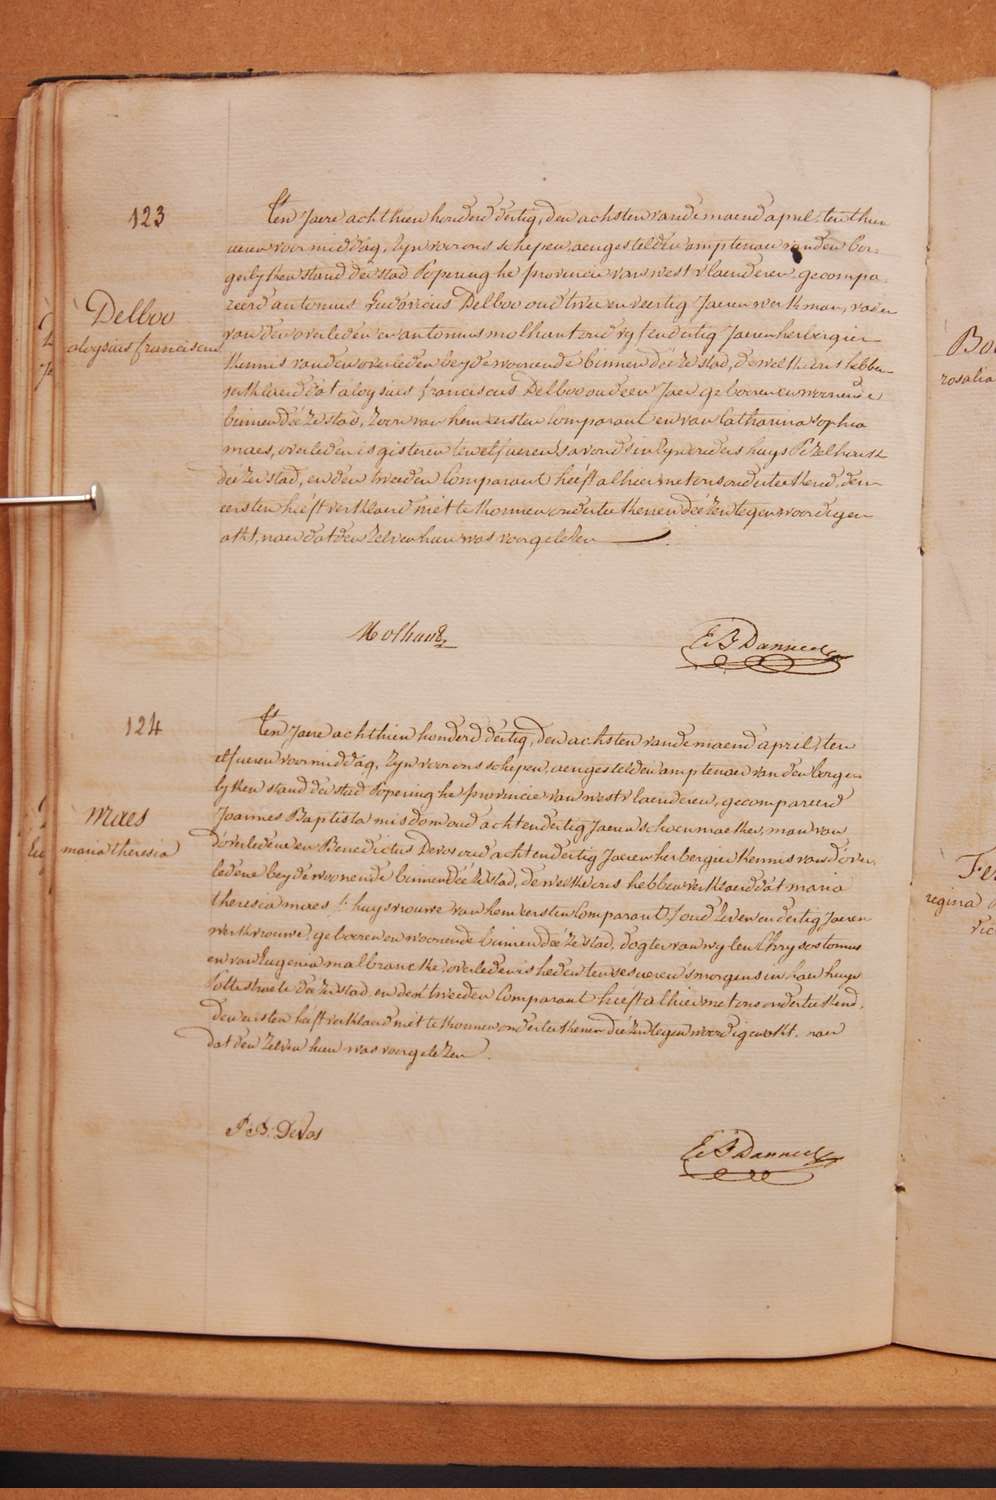 123
Delboo
aloysius franciscus
Ten Jaere achthien honderd dertig, den achsten van de maend april, ten thien
ueren voormiddag, zyn voor ons schepen, aengestelden amptenaer van den bor-
gerlyken stand der stad Poperinghe provincie van westvlaenderen, gecompa-
reerd antonius Ludovicus Delboo oud twee en veertig Jaeren werkman, vader
van den overledenen en antonius molhant oud vyf en dertig Jaeren herbergier
kennis van den overleden beyde woonende binnen deéze stad, de welke ons hebben
verklaerd dat aloysius franciscus Delboo oud een Jaer geboren en woonende
binnen deéze stad, zoon van hem eersten Comparant en van Catharina sophia
maes, overleden is gisteren ten elf ueren 's avonds in zyn ouders huys
deézer stad, en den tweeden Comparant heéft alhier met ons onderteekend, den
eersten heéft verklaerd niet te konnen onderteekenen deézen tegenwoordigen
akt, naer dat den zelven hun was voorgelezen
Molhant
E B Danneel
124
Maes
maria theresia
Ten Jaere achthien honderd dertig, den achsten van de maend april, ten
elf ueren voormiddag, zyn voor ons schepen, aengestelden amptenaer van den borger-
lyken stand der stad Poperinghe provincie van westvlaenderen, gecompareerd
Joannes Baptista misdom oud acht en dertig Jaeren schoenmaeker, man van
d'overledene en Benedictus Devos oud acht en dertig Jaeren herbergier kennis van d'over-
ledene beyde woonende binnen deéze stad, de welke ons hebben verklaerd dat maria
theresia maes (: huysvrouwe van hem eersten Comparant :) oud zeven en dertig Jaeren
werkvrouwe, geboren en woonende binnen deéze stad, dogter van wylen Chrysostomus
en van Eugenia malbrancke, overleden is heden ten ses ueren 's morgens in haer huys
Pottestraete deézer stad, en den tweeden Comparant heéft alhier met ons onderteekend,
den eersten heéft verklaerd niet te konnen onderteekenen deézen tegenwoordigen akt, naer
dat den zelven hun was voorgelezen.
P. B. DeVos
E B Danneel
rosalia
regina